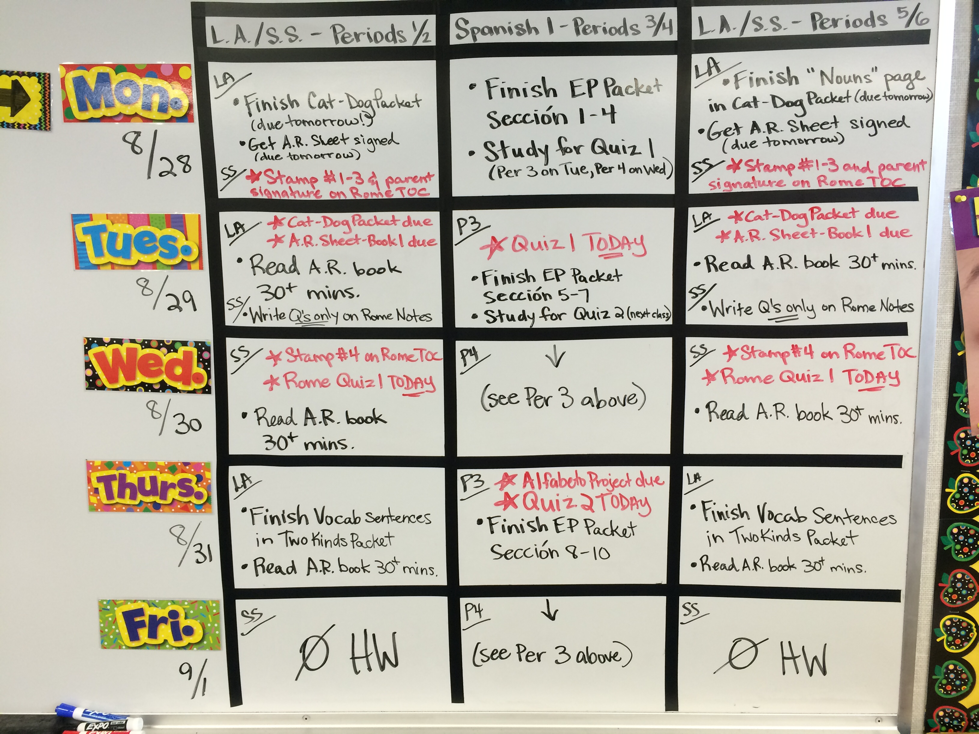 L.A./S.S. - Periods 1/2
Spanish 1 - Periods 3/4
L.A./S.S. - Periods 5/6
Mon.
8/28
LA
• Finish Cat-Dog Packet
(due tomorrow!)
• Get A.R. Sheet signed
(due tomorrow)
SS
* Stamp #1-3 & parent
signature on Rome TOC
• Finish EP Packet
Sección 1-4
• Study for Quiz 1
(Per 3 on Tue, Per 4 on Wed)
LA
• Finish "Nouns" page
in Cat-Dog Packet (due tomorrow)
• Get A.R. Sheet signed
(due tomorrow)
SS
* Stamp #1-3 and parent
signature on Rome TOC
Tues.
8/29
LA
* Cat-Dog Packet due
* A.R. Sheet-Book 1 due
• Read A.R. book
30+ mins.
SS
• Write Q's only on Rome Notes
P3
* Quiz 1 TODAY
• Finish EP Packet
Sección 5-7
• Study for Quiz 2 (next class)
LA
* Cat-Dog Packet due
* A.R. Sheet-Book 1 due
• Read A.R. book 30+ mins.
SS
• Write Q's only on Rome Notes
Wed.
8/30
SS
* Stamp #4 on Rome TOC
* Rome Quiz 1 TODAY
• Read A.R. book
30+ mins.
P4
↓
(see Per 3 above)
SS
* Stamp #4 on Rome TOC
* Rome Quiz 1 TODAY
• Read A.R. book 30+ mins.
Thurs.
8/31
LA
• Finish Vocab Sentences
in Two Kinds Packet
• Read A.R. book 30+ mins.
P3
* Alfabeto Project due
* Quiz 2 TODAY
• Finish EP Packet
Sección 8-10
LA
• Finish Vocab Sentences
in Two Kinds Packet
• Read A.R. book 30+ mins.
Fri.
9/1
SS
Ø HW
P4
↓
(see Per 3 above)
SS
Ø HW
EXPO